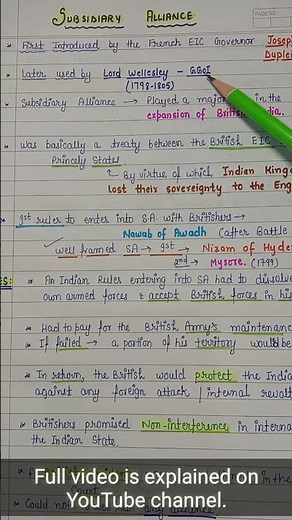 SUBSIDIARY ALLIANCE
PAGE NO.
First Introduced by the French EIC Governor Joseph
Duplei
Later used by Lord Wellesley - GGoI
(1798-1805)
Subsidiary Alliance → Played a majo in the
expansion of British dia.
was basically a treaty between the British EIC
Princely States
By virtue of which Indian King
Lost their sovereignty to the Eng
1st rulers to enter into SA with Britishers →
Nawab of Awadh (after Battle
well framed SA → 1st → Nizam of Hyde
2nd → Mysore. (1799)
ES:
An Indian Rulers entering into SA had to dissolve
own armed forces & accept British forces in his
Had to pay for the British Army's maintenanc
If failed → a portion of his territory would be
In return, the British would protect the India
against any foreign attack / internal revolt
Britishers promised Non-interference in interna
the Indian State.
in the
Court
Could not
Full video is explained on
YouTube channel.